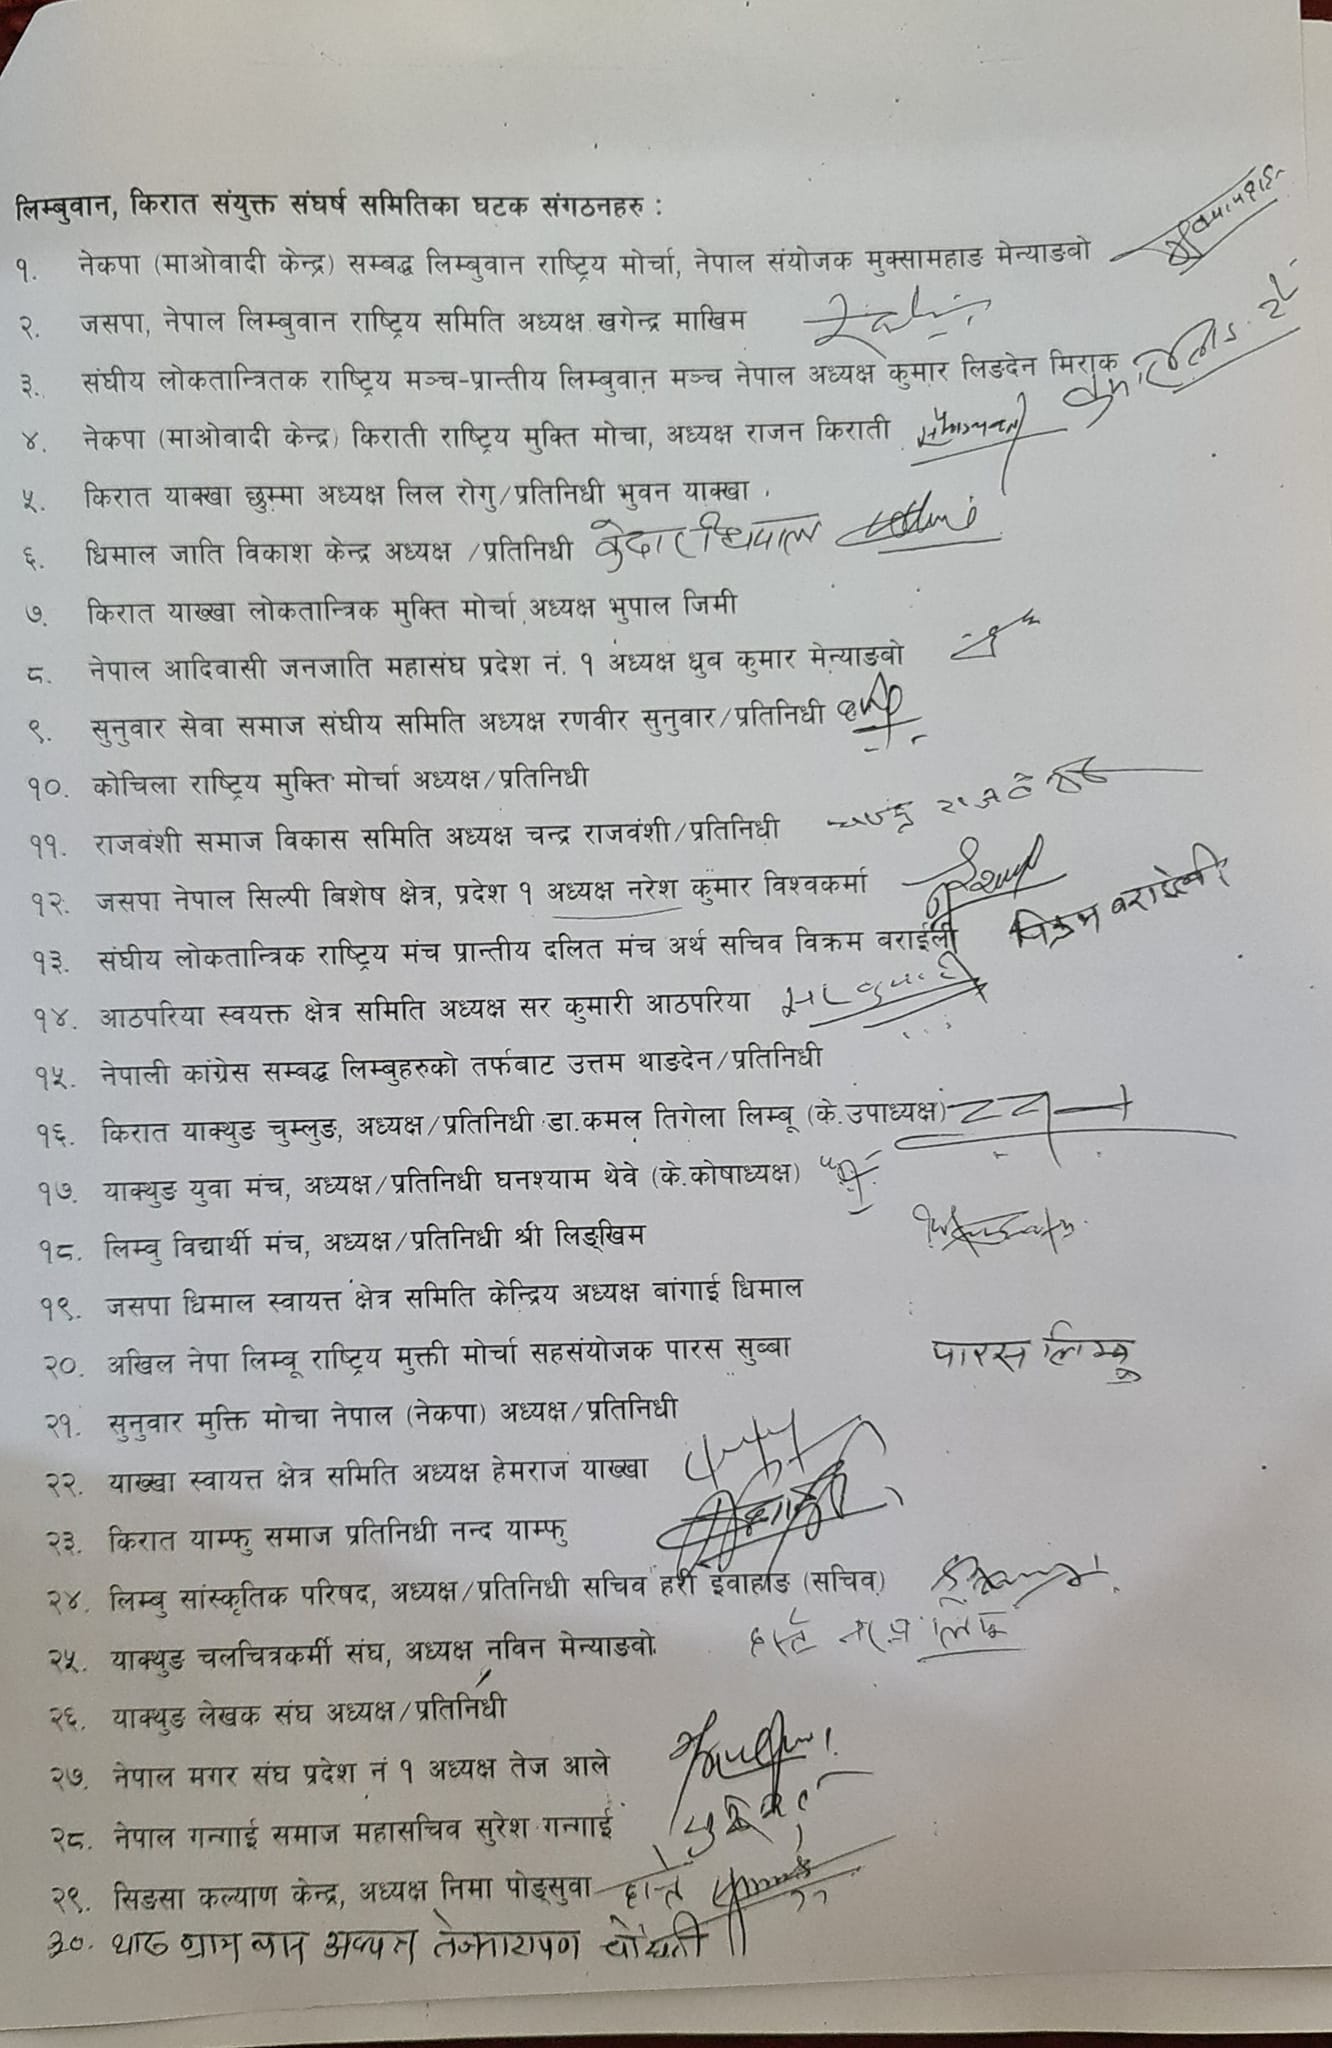 लिम्बुवान, किरात संयुक्त संघर्ष समितिका घटक संगठनहरु :
१. नेकपा (माओवादी केन्द्र) सम्बद्ध लिम्बुवान राष्ट्रिय मोर्चा, नेपाल संयोजक मुक्सामहाङ मेन्याङवो
२. जसपा, नेपाल लिम्बुवान राष्ट्रिय समिति अध्यक्ष खगेन्द्र माखिम
३. संघीय लोकतान्त्रितक राष्ट्रिय मञ्च-प्रान्तीय लिम्बुवान मञ्च नेपाल अध्यक्ष कुमार लिङदेन मिराक
४. नेकपा (माओवादी केन्द्र) किराती राष्ट्रिय मुक्ति मोचा, अध्यक्ष राजन किराती
५. किरात याक्खा छुम्मा अध्यक्ष लिल रोगु/प्रतिनिधी भुवन याक्खा
६. धिमाल जाति विकाश केन्द्र अध्यक्ष /प्रतिनिधी केदार धिमाल
७. किरात याख्खा लोकतान्त्रिक मुक्ति मोर्चा अध्यक्ष भुपाल जिमी
८. नेपाल आदिवासी जनजाति महासंघ प्रदेश नं. १ अध्यक्ष ध्रुव कुमार मेन्याङवो
९. सुनुवार सेवा समाज संघीय समिति अध्यक्ष रणवीर सुनुवार/प्रतिनिधी
१०. कोचिला राष्ट्रिय मुक्ति मोर्चा अध्यक्ष/प्रतिनिधी
११. राजवंशी समाज विकास समिति अध्यक्ष चन्द्र राजवंशी/प्रतिनिधी
१२. जसपा नेपाल सिल्पी बिशेष क्षेत्र, प्रदेश १ अध्यक्ष नरेश कुमार विश्वकर्मा
१३. संघीय लोकतान्त्रिक राष्ट्रिय मंच प्रान्तीय दलित मंच अर्थ सचिव विक्रम वराईली
१४. आठपरिया स्वयक्त क्षेत्र समिति अध्यक्ष सर कुमारी आठपरिया
१५. नेपाली कांग्रेस सम्बद्ध लिम्बुहरुको तर्फबाट उत्तम थाङदेन/प्रतिनिधी
१६. किरात याक्थुङ चुम्लुङ, अध्यक्ष/प्रतिनिधी डा.कमल तिगेला लिम्बू (के.उपाध्यक्ष)
१७. याक्थुङ युवा मंच, अध्यक्ष/प्रतिनिधी घनश्याम थेवे (के.कोषाध्यक्ष)
१८. लिम्बु विद्यार्थी मंच, अध्यक्ष/प्रतिनिधी श्री लिङ्खिम
१९. जसपा धिमाल स्वायत्त क्षेत्र समिति केन्द्रिय अध्यक्ष बांगाई धिमाल
२०. अखिल नेपा लिम्बू राष्ट्रिय मुक्ती मोर्चा सहसंयोजक पारस सुब्बा पारस लिम्बू
२१. सुनुवार मुक्ति मोचा नेपाल (नेकपा) अध्यक्ष/प्रतिनिधी
२२. याख्खा स्वायत्त क्षेत्र समिति अध्यक्ष हेमराज याख्खा
२३. किरात याम्फु समाज प्रतिनिधी नन्द याम्फु
२४. लिम्बु सांस्कृतिक परिषद, अध्यक्ष/प्रतिनिधी सचिव हरी इवाहाङ (सचिव)
२५. याक्थुङ चलचित्रकर्मी संघ, अध्यक्ष नविन मेन्याङवो
२६. याक्थुङ लेखक संघ अध्यक्ष/प्रतिनिधी
२७. नेपाल मगर संघ प्रदेश नं १ अध्यक्ष तेज आले
२८. नेपाल गन्गाई समाज महासचिव सुरेश गन्गाई
२९. सिङसा कल्याण केन्द्र, अध्यक्ष निमा पोङ्सुवा
३०. तेजनारायण चौधरी